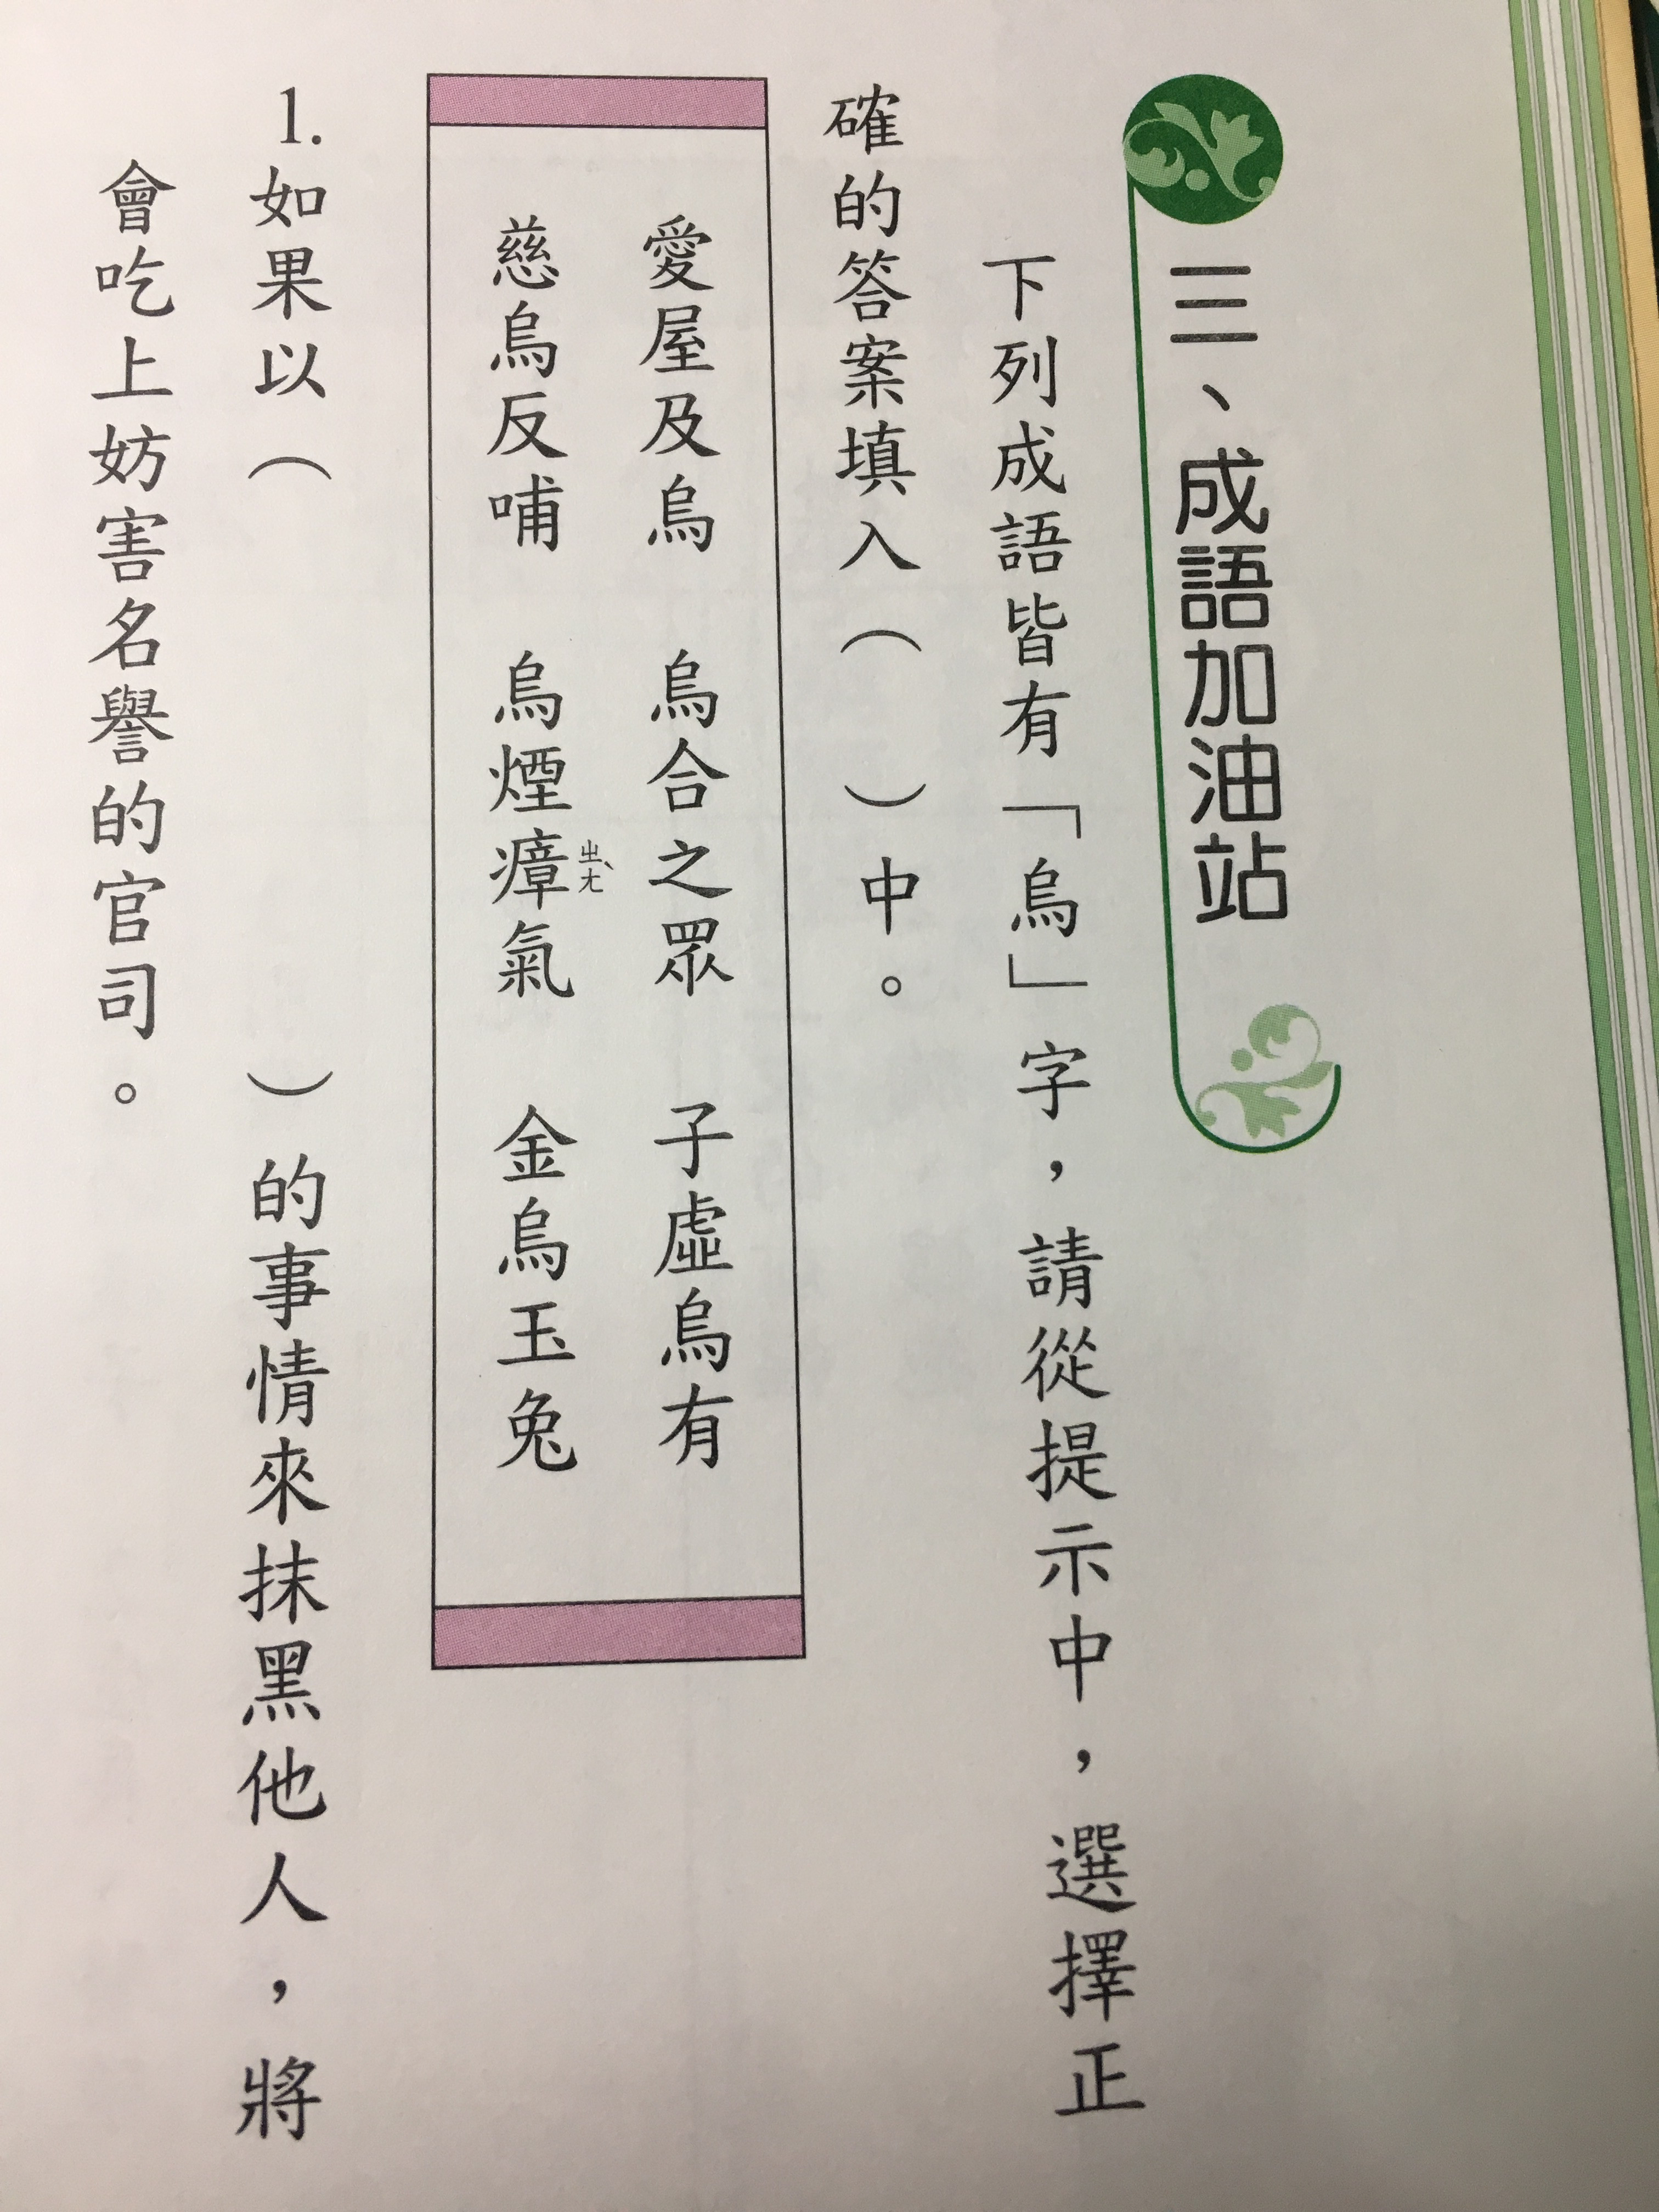 三、成語加油站
下列成語皆有「烏」字，請從提示中，選擇正
確的答案填入（　）中。
愛屋及烏　烏合之眾　子虛烏有
慈烏反哺　烏煙瘴氣　金烏玉兔
ㄓㄤˋ
1.如果以（　　　　　　）的事情來抹黑他人，將
會吃上妨害名譽的官司。